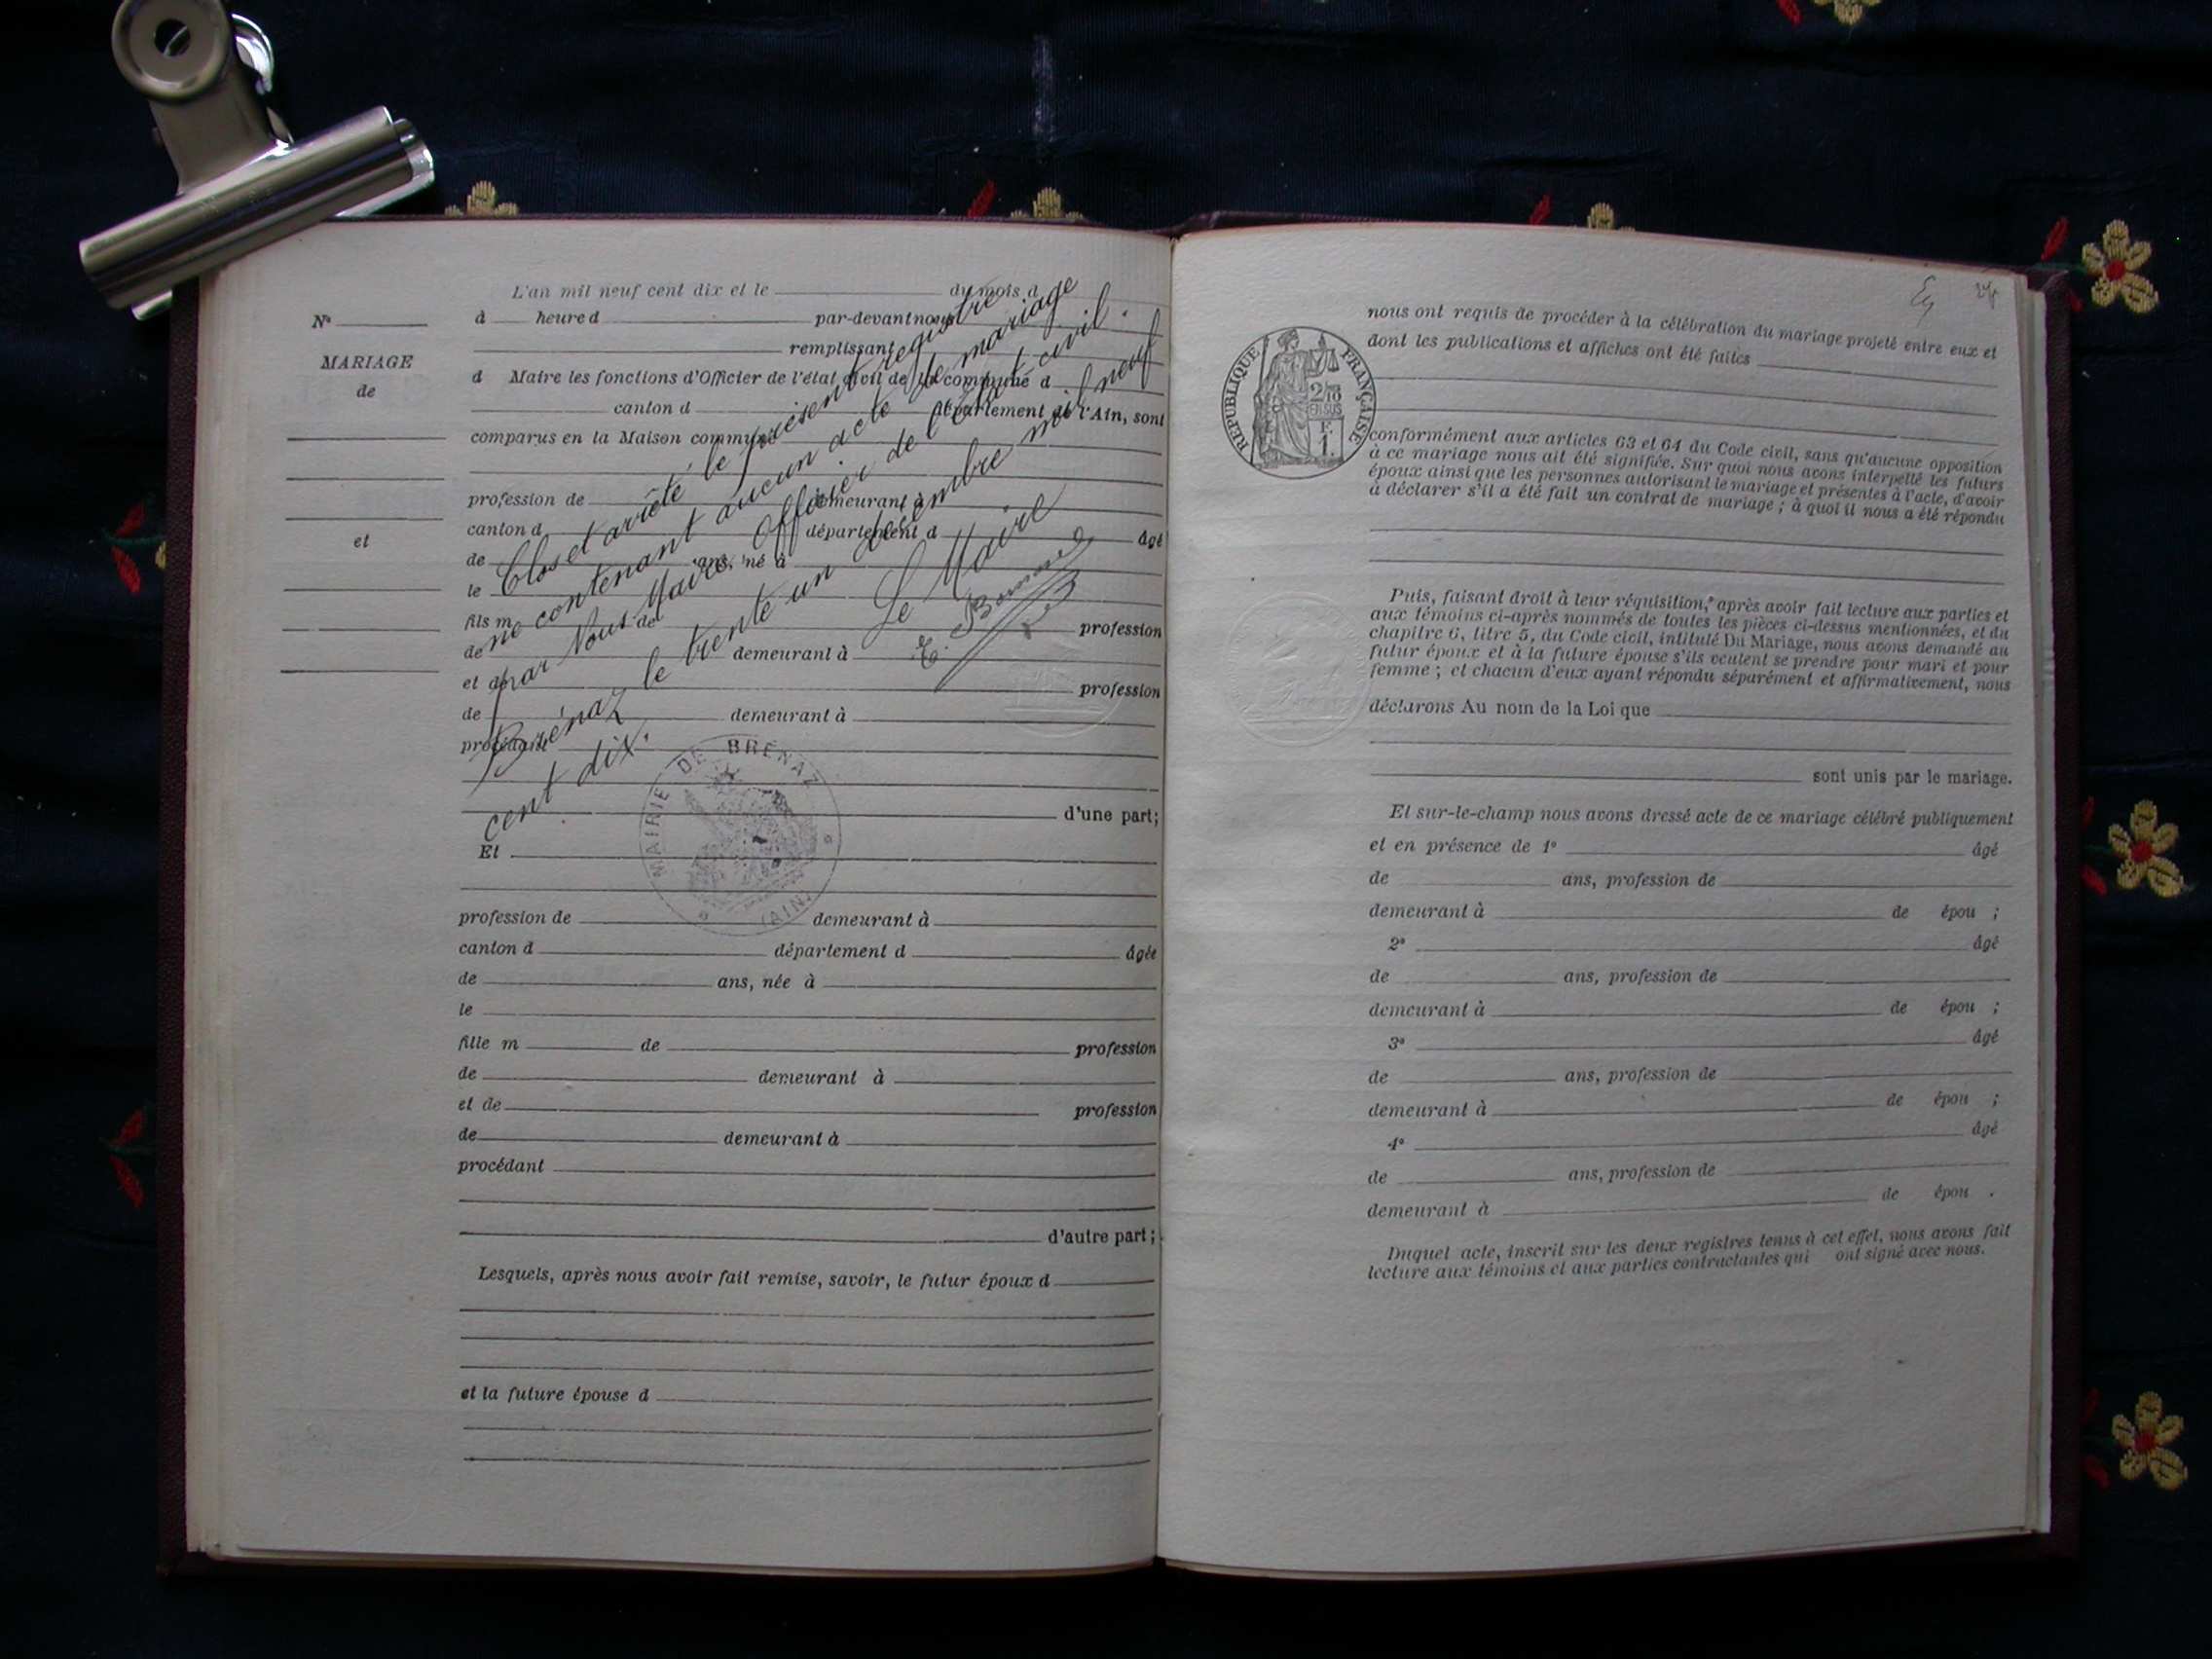 L'an mil neuf cent dix et le du mois d
N° à heure d par-devant nous
remplissant
MARIAGE
d Maire les fonctions d'Officier de l'état civil de la commune d
de
canton d département de l'Ain, sont
comparus en la Maison commune
profession de demeurant à
canton d département d âgé
et
de ans, né à
le
fils m de profession
de demeurant à
et de profession
de demeurant à
procédant
d'une part;
Et
profession de demeurant à
canton d département d âgée
de ans, née à
le
fille m de profession
de demeurant à
et de profession
de demeurant à
procédant
d'autre part;
Lesquels, après nous avoir fait remise, savoir, le futur époux d
et la future épouse d
Clos et arrêté le présent registre
ne contenant aucun acte de mariage
par Nous Maire, Officier de l'état civil.
Brénaz le trente un décembre mil neuf
cent dix.
Le Maire
MAIRIE DE BRÉNAZ
(AIN)
nous ont requis de procéder à la célébration du mariage projeté entre eux et
dont les publications et affiches ont été faites
RÉPUBLIQUE FRANÇAISE
2/10
EN SUS
F.
1.
conformément aux articles 63 et 64 du Code civil, sans qu'aucune opposition
à ce mariage nous ait été signifiée. Sur quoi nous avons interpellé les futurs
époux ainsi que les personnes autorisant le mariage et présentes à l'acte, d'avoir
à déclarer s'il a été fait un contrat de mariage ; à quoi il nous a été répondu
Puis, faisant droit à leur réquisition, après avoir fait lecture aux parties et
aux témoins ci-après nommés de toutes les pièces ci-dessus mentionnées, et du
chapitre 6, titre 5, du Code civil, intitulé Du Mariage, nous avons demandé au
futur époux et à la future épouse s'ils veulent se prendre pour mari et pour
femme ; et chacun d'eux ayant répondu séparément et affirmativement, nous
déclarons Au nom de la Loi que
sont unis par le mariage.
Et sur-le-champ nous avons dressé acte de ce mariage célébré publiquement
et en présence de 1° âgé
de ans, profession de
demeurant à de épou ;
2° âgé
de ans, profession de
demeurant à de épou ;
3° âgé
de ans, profession de
demeurant à de épou ;
4° âgé
de ans, profession de
demeurant à de épou .
Duquel acte, inscrit sur les deux registres tenus à cet effet, nous avons fait
lecture aux témoins et aux parties contractantes qui ont signé avec nous.